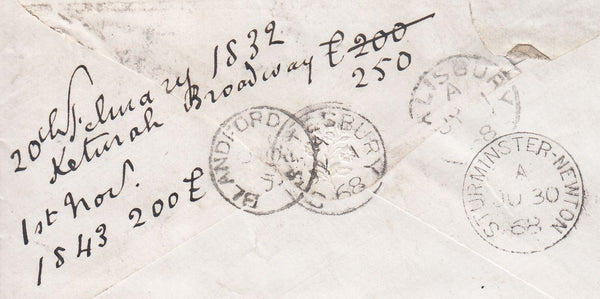 20th February 1832
Keturah Broadway £ 200
250
1st Nov.
1843 200 £
BLANDFORD
SALISBURY
68
ALISBURY
A
8
STURMINSTER-NEWTON
A
JU 30
68